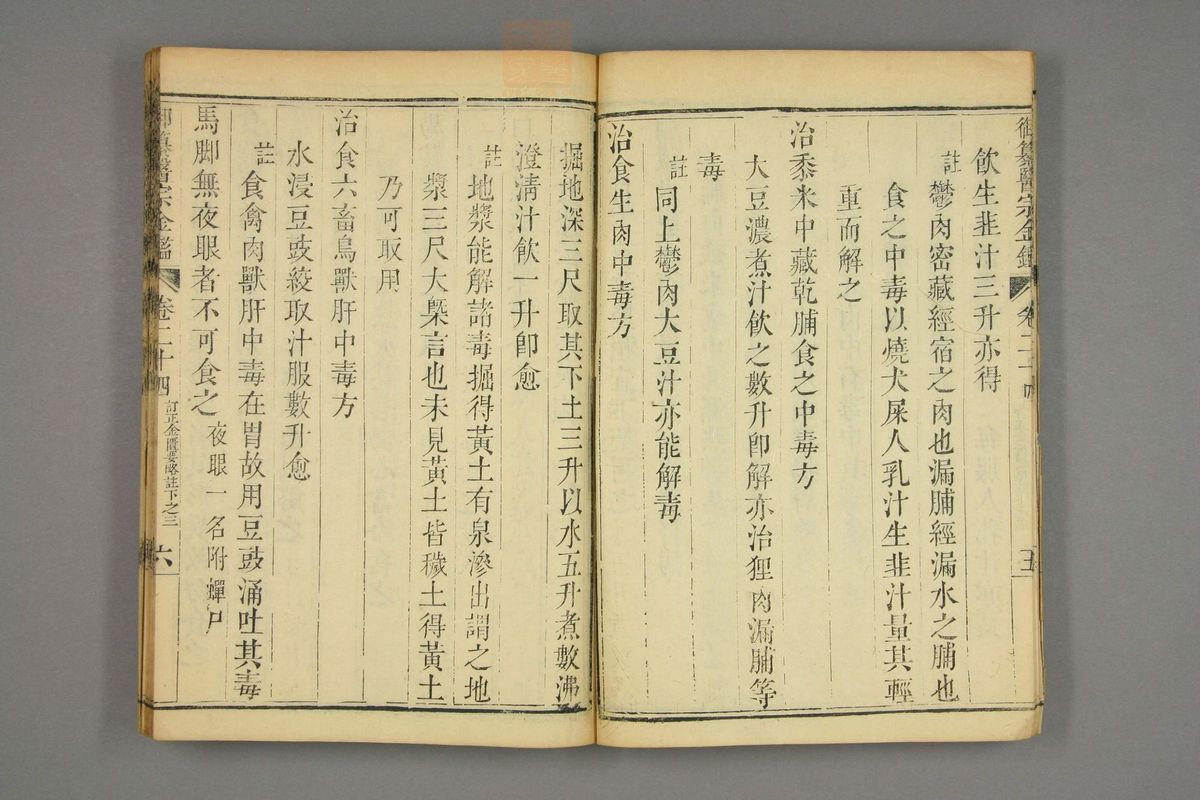 御纂醫宗金鑑 卷二十四 五
飲生韭汁三升亦得
註鬱肉密藏經宿之肉也漏脯經漏水之脯也
食之中毒以燒犬屎人乳汁生韭汁量其輕
重而解之
治黍米中藏乾脯食之中毒方
大豆濃煮汁飲之數升卽解亦治狸肉漏脯等
毒
註同上鬱肉大豆汁亦能解毒
治食生肉中毒方
掘地深三尺取其下土三升以水五升煮數沸
澄淸汁飲一升卽愈
註地漿能解諸毒掘得黃土有泉滲出謂之地
漿三尺大槩言也未見黃土皆穢土得黃土
乃可取用
治食六畜鳥獸肝中毒方
水浸豆豉絞取汁服數升愈
註食禽肉獸肝中毒在胃故用豆豉涌吐其毒
馬脚無夜眼者不可食之 夜眼一名附蟬尸
御纂醫宗金鑑 卷二十四 訂正金匱要略註下之三 六